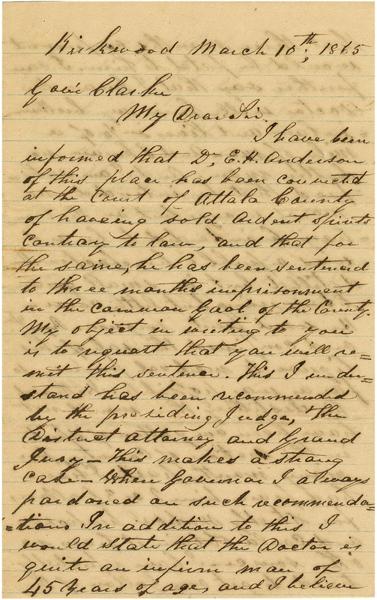 Kirkwood March 10th, 1865
Gov Clarke
My Dear Sir,
I have been
informed that Dr E. H. Anderson
of this place has been convicted
at the Court of Attala County
of haveing sold ardent spirits
contrary to law, and that for
the same, he has been sentenced
to three months imprisonment
in the common Gaol of the County.
My object in writing to you
is to request that you will re-
mit this sentence. This I under-
stand has been recommended
by the presiding Judge, the
District attorney and Grand
Jury — This makes a strong
case — When Governor I always
pardoned on such recommenda-
=tions In addition to this I
would state that the Doctor is
quite an infirm man of
45 years of age, and I believe